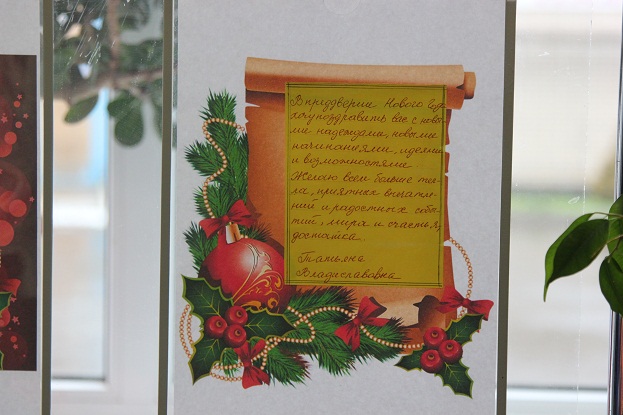 В преддверии Нового года
хочу поздравить вас с новы-
ми надеждами, новыми
начинаниями, идеями
и возможностями.
Желаю всем больше теп-
ла, приятных впечатле-
ний и радостных собы-
тий, мира и счастья,
достатка.
Татьяна
Владиславовна